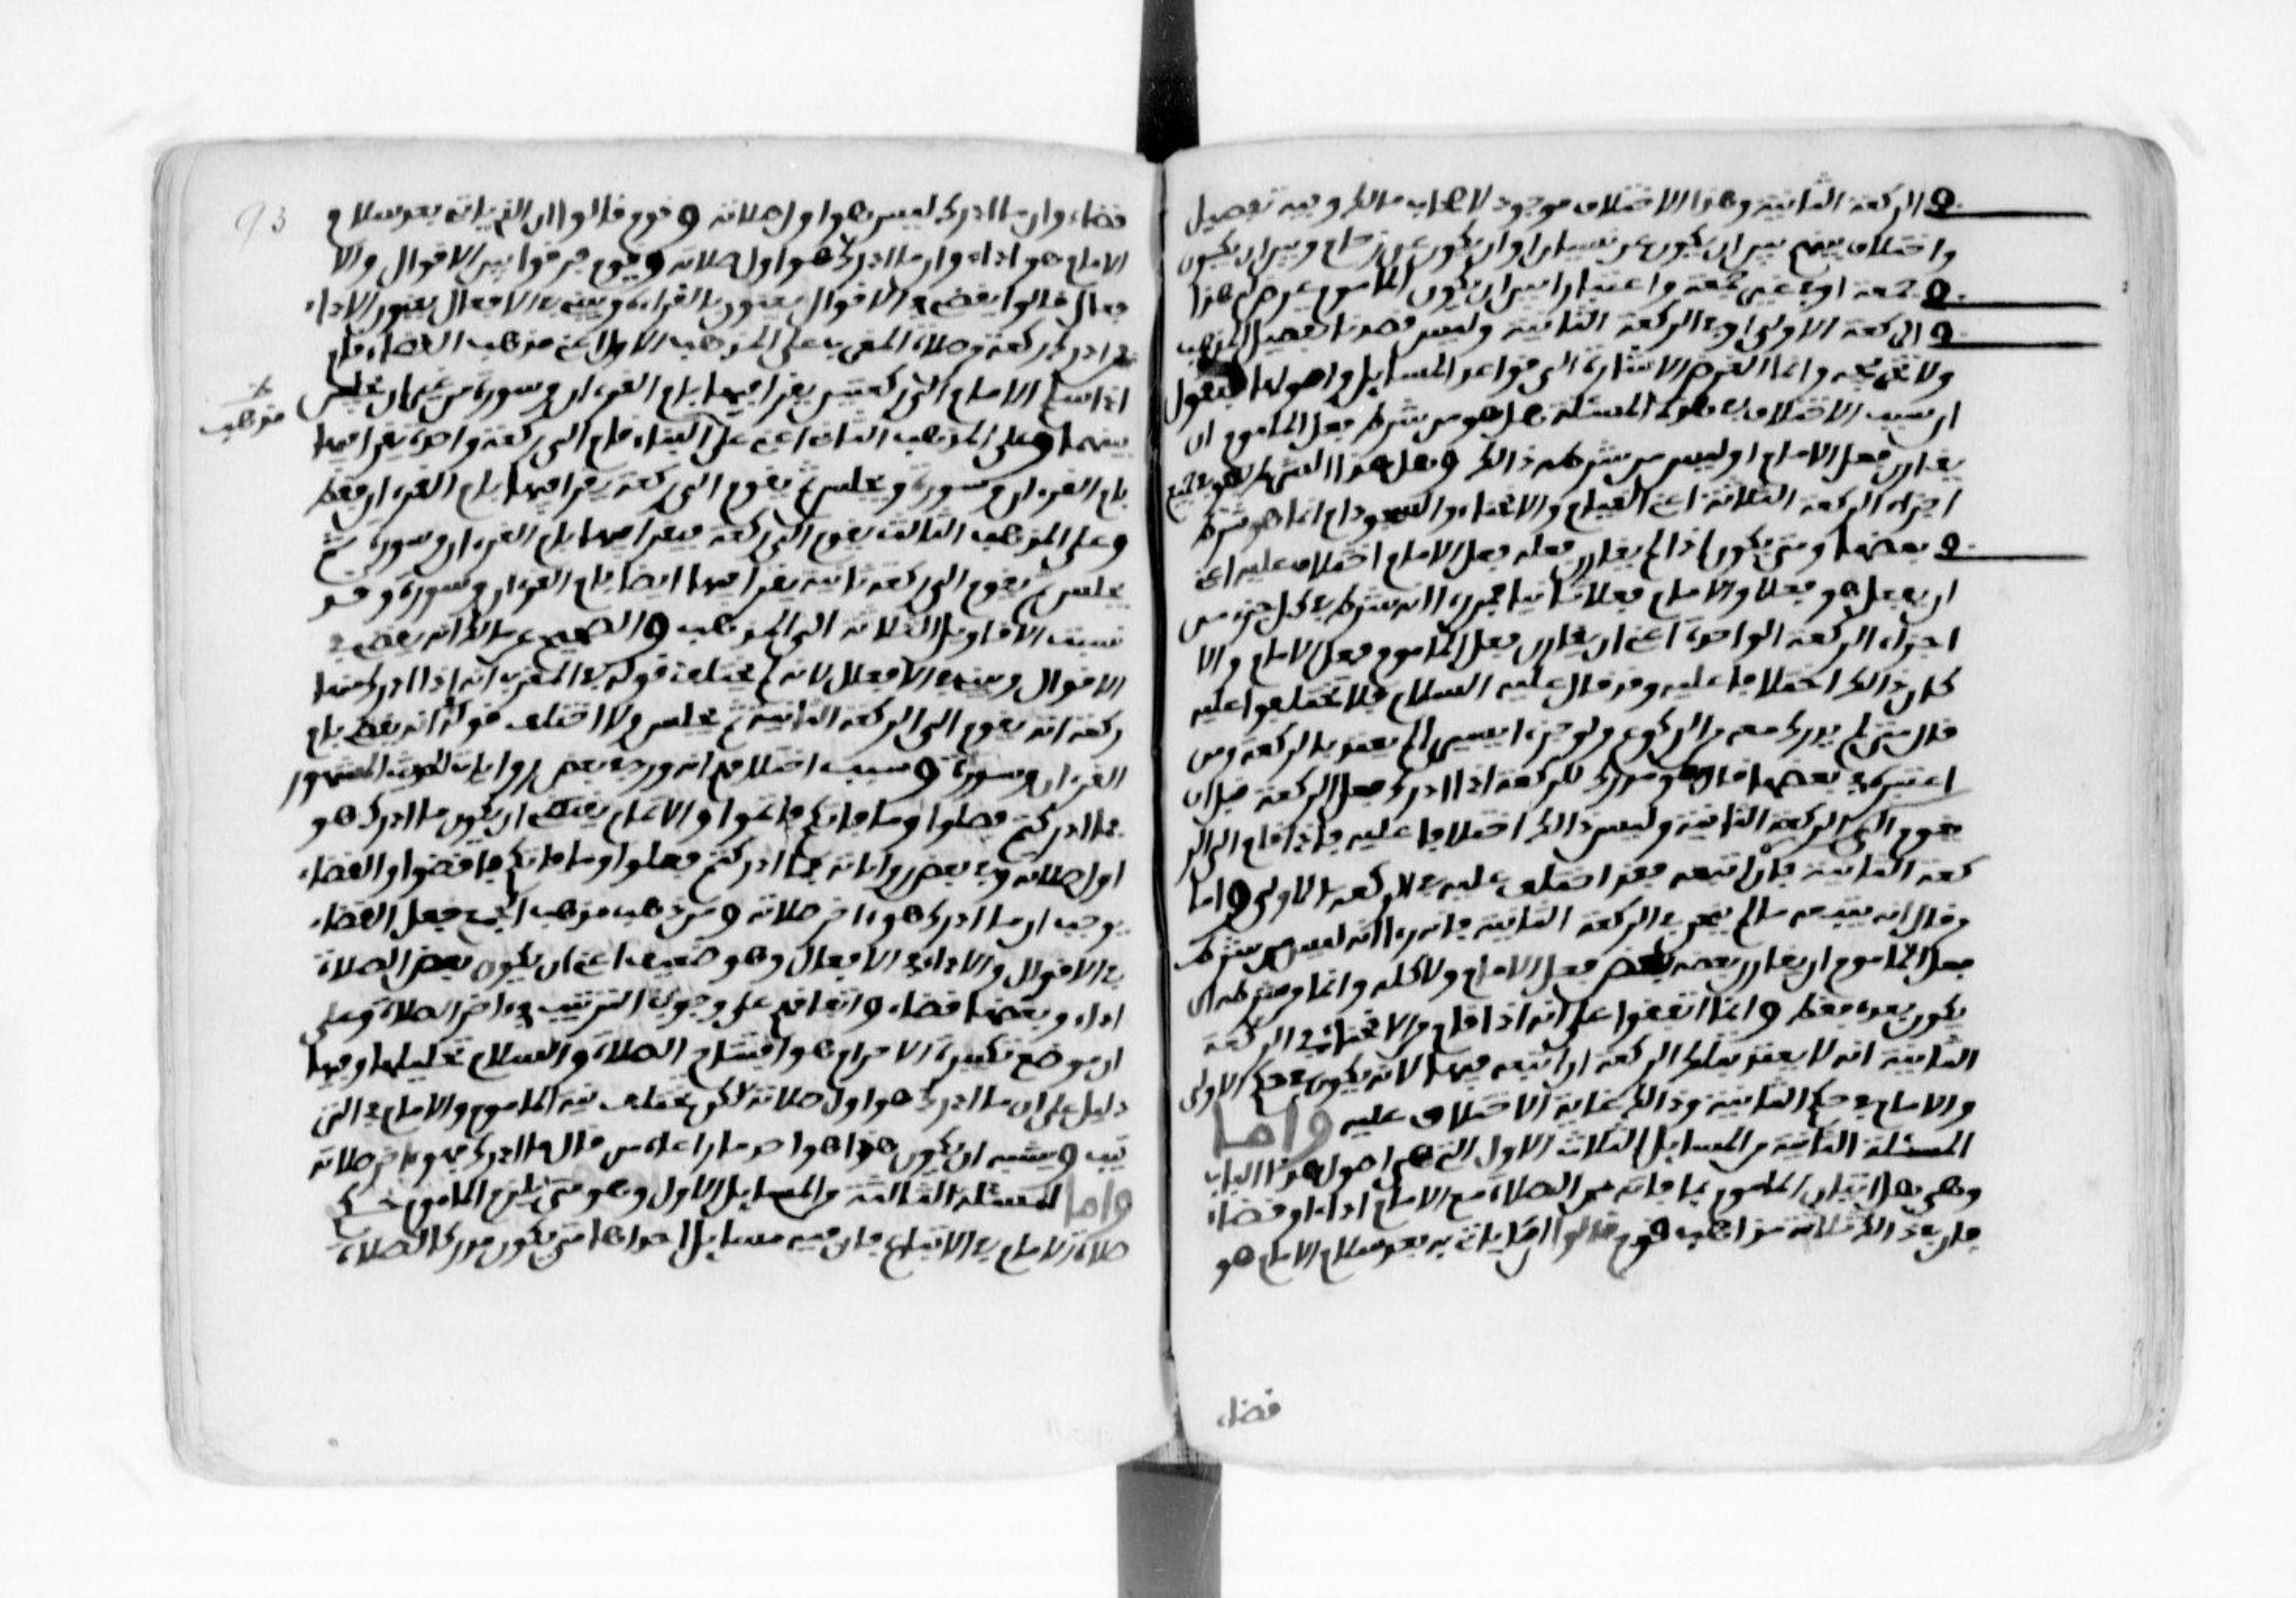 في الركعة الثانية وهذا الاختلاف موجود لاصحاب مالك وفيه تفصيل
واختلاف بينهم بين ان يكون عن نسيان او ان يكون عن زحام وبين ان يكون
في جمعة او في غير جمعة واعتبارا بين ان يكون الماموم عرض له هذا
في الركعة الاولى او في الركعة الثانية وليس قصدنا تفصيل المذهب
ولا تخريجه وانما الغرض الاشارة الى قواعد المسايل واصولها فنقول
ان سبب الاختلاف في هذه المسئلة هل هو من شرط فعل الماموم ان
يقارن فعل الامام او ليس من شرطه ذالك وهل هذا الشرط هو في جميع
اجزاء الركعة الثلاثة اعني القيام والانحناء والسجود ام انما هو شرط
في بعضها ومتى يكون اذا لم يقارن فعله فعل الامام اختلاف عليه اعني
ان يفعل هو فعلا والامام فعلا ثانيا فمن رءا انه شرط في كل جزء من
اجزاء الركعة الواحدة اعني ان يقارن فعل الماموم فعل الامام والا
كان ذالك اختلافا عليه وقد قال عليه السلام فلا تختلفوا عليه
قال متى لم يدرك معه من الركوع ولو جزءا يسيرا لم يعتد بالركعة ومن
اعتبره في بعضها قال هو مدرك للركعة اذا ادرك فعل الركعة قبل ان
يقوم الى الركعة الثانية وليس ذالك اختلافا عليه فاذا قام الى الر
كعة الثانية فان اتبعه فقد اختلف عليه في الركعة الاولى واما
من قال انه يتبعه ما لم ينحن في الركعة الثانية فانه رءا انه ليس من شرط
فعل الماموم ان يقارن بعضه بعض فعل الامام ولا كله وانما من شرطه ان
يكون بعده فقط وانما اتفقوا على انه اذا قام من الانحناء في الركعة
الثانية انه لا يعتد بتلك الركعة ان اتبعه فيها لانه يكون في حكم الاولى
والامام في حكم الثانية وذالك غاية الاختلاف عليه واما
المسئلة الثانية من المسايل الثلاث الاول التي هي اصول هذا الباب
وهي هل اتيان الماموم بما فاته من الصلاة مع الامام اداء او قضاء
فان في ذالك ثلاثة مذاهب قوم قالوا ان ما ياتي به بعد سلام الامام هو
قضاء
93
قضاء وان ما ادرك ليس هو اول صلاته وقوم قالوا ان الذي ياتي بعد سلام
الامام هو اداء وان ما ادرك هو اول صلاته وقوم فرقوا بين الاقوال والا
فعال فقالوا يقضي في الاقوال يعنون بالقراءة ويبني في الافعال يعنون الاداء
فمن ادرك ركعة من صلاة المغرب على المذهب الاول اعني مذهب القضاء قام
اذا سلم الامام الى ركعتين يقرا فيهما بام القرءان وسورة من غير ان يجلس
بينهما وعلى المذهب الثاني اعني على البناء قام الى ركعة واحدة يقرا فيها
مذهب
بام القرءان وسورة ويجلس ثم يقوم الى ركعة يقرا فيها بام القرءان فقط
وعلى المذهب الثالث يقوم الى ركعة فيقرا فيها بام القرءان وسورة ثم
يجلس ثم يقوم الى ركعة ثانية يقرا فيها ايضا بام القرءان وسورة وقد
نسبت الاقاويل الثلاثة الى المذهب والصحيح عن مالك انه يقضي في
الاقوال ويبني في الافعال لانه لم يختلف قوله في المغرب انه اذا ادرك منها
ركعة انه يقوم الى الركعة الثانية ثم يجلس ولا اختلف قوله انه يقضي بام
القرءان وسورة وسبب اختلافهم انه ورد في بعض روايات الحديث المشهور
فما ادركتم فصلوا وما فاتكم فاتموا والاتمام يقتضي ان يكون ما ادرك هو
اول صلاته وفي بعض رواياته فما ادركتم فصلوا وما فاتكم فاقضوا والقضاء
يوجب ان ما ادرك هو ءاخر صلاته ومن ذهب مذهب الجمع جعل القضاء
في الاقوال والاداء في الافعال وهو ضعيف اعني ان يكون بعض الصلاة
اداء وبعضها قضاء واتفاقهم على وجوب الترتيب في اجزاء الصلاة وعلى
ان موضع تكبيرة الاحرام هو افتتاح الصلاة والسلام تحليلها وفيها
دليل على ان ما ادرك هو اول صلاته لاكن تختلف نية الماموم والامام في التر
تيب ويشبه ان يكون هذا هو احد ما راعاه من قال ما ادرك فهو ءاخر صلاته
واما المسئلة الثالثة من المسايل الاول وهو متى يلزم الماموم حكم
صلاة الامام في الاتباع فان فيه مسايل احداها متى يكون مدركا لصلاة